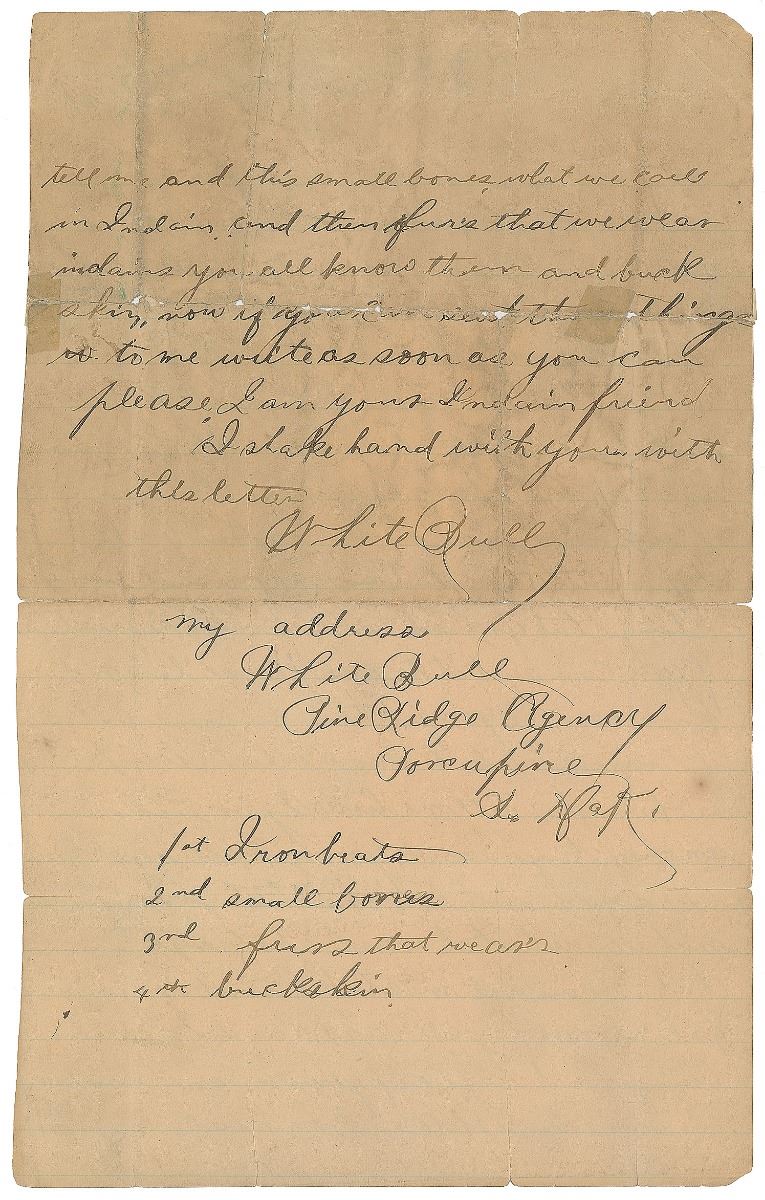 tell me and this small bones, what we call
in Indain, and then furs that we wear
indains you all know them and buck
skin, now if you send the things
to me write as soon as you can
please, I am your Indain friend
I shake hand with you with
this letter
White Bull
my address
White Bull
Pine Ridge Agency
Porcupine
So Dak.
1st Ironbeats
2nd small bones
3rd furs that wears
4th buckskin